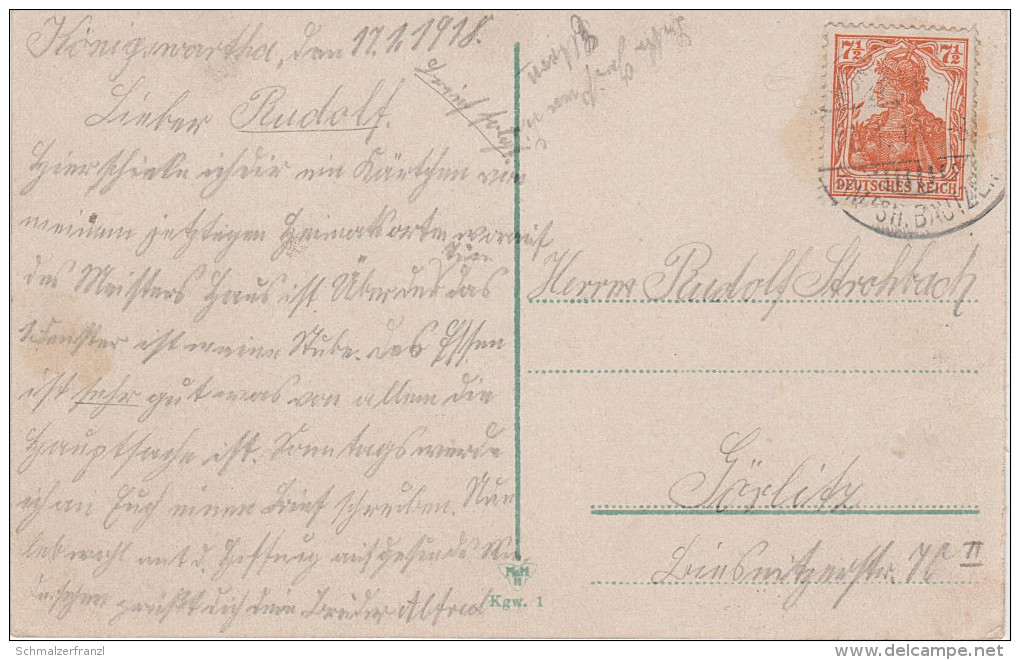 Königswartha, den 17.1.1918.
Lieber Rudolf.
Hier schicke ich dir ein Kärtchen von
meinem jetzigen Heimatsorte worauf
des Meisters Haus ist. Über der das
Tür
1. Fenster ist meine Stube. Das Essen
ist sehr gut was von allem die
Hauptsache ist. Sonntags werde
ich an Euch einen Brief schreiben. Nun
leb wohl mit d. Hoffnung auf gesundes
grüßt dich dein Bruder Alfred
Eltern
7½ 7½
DEUTSCHES REICH
BAUTZEN
Herrn Rudolf Strohbach
Görlitz
Biesnitzerstr. 76 II
Kgw. 1
Schmalzerfranzl